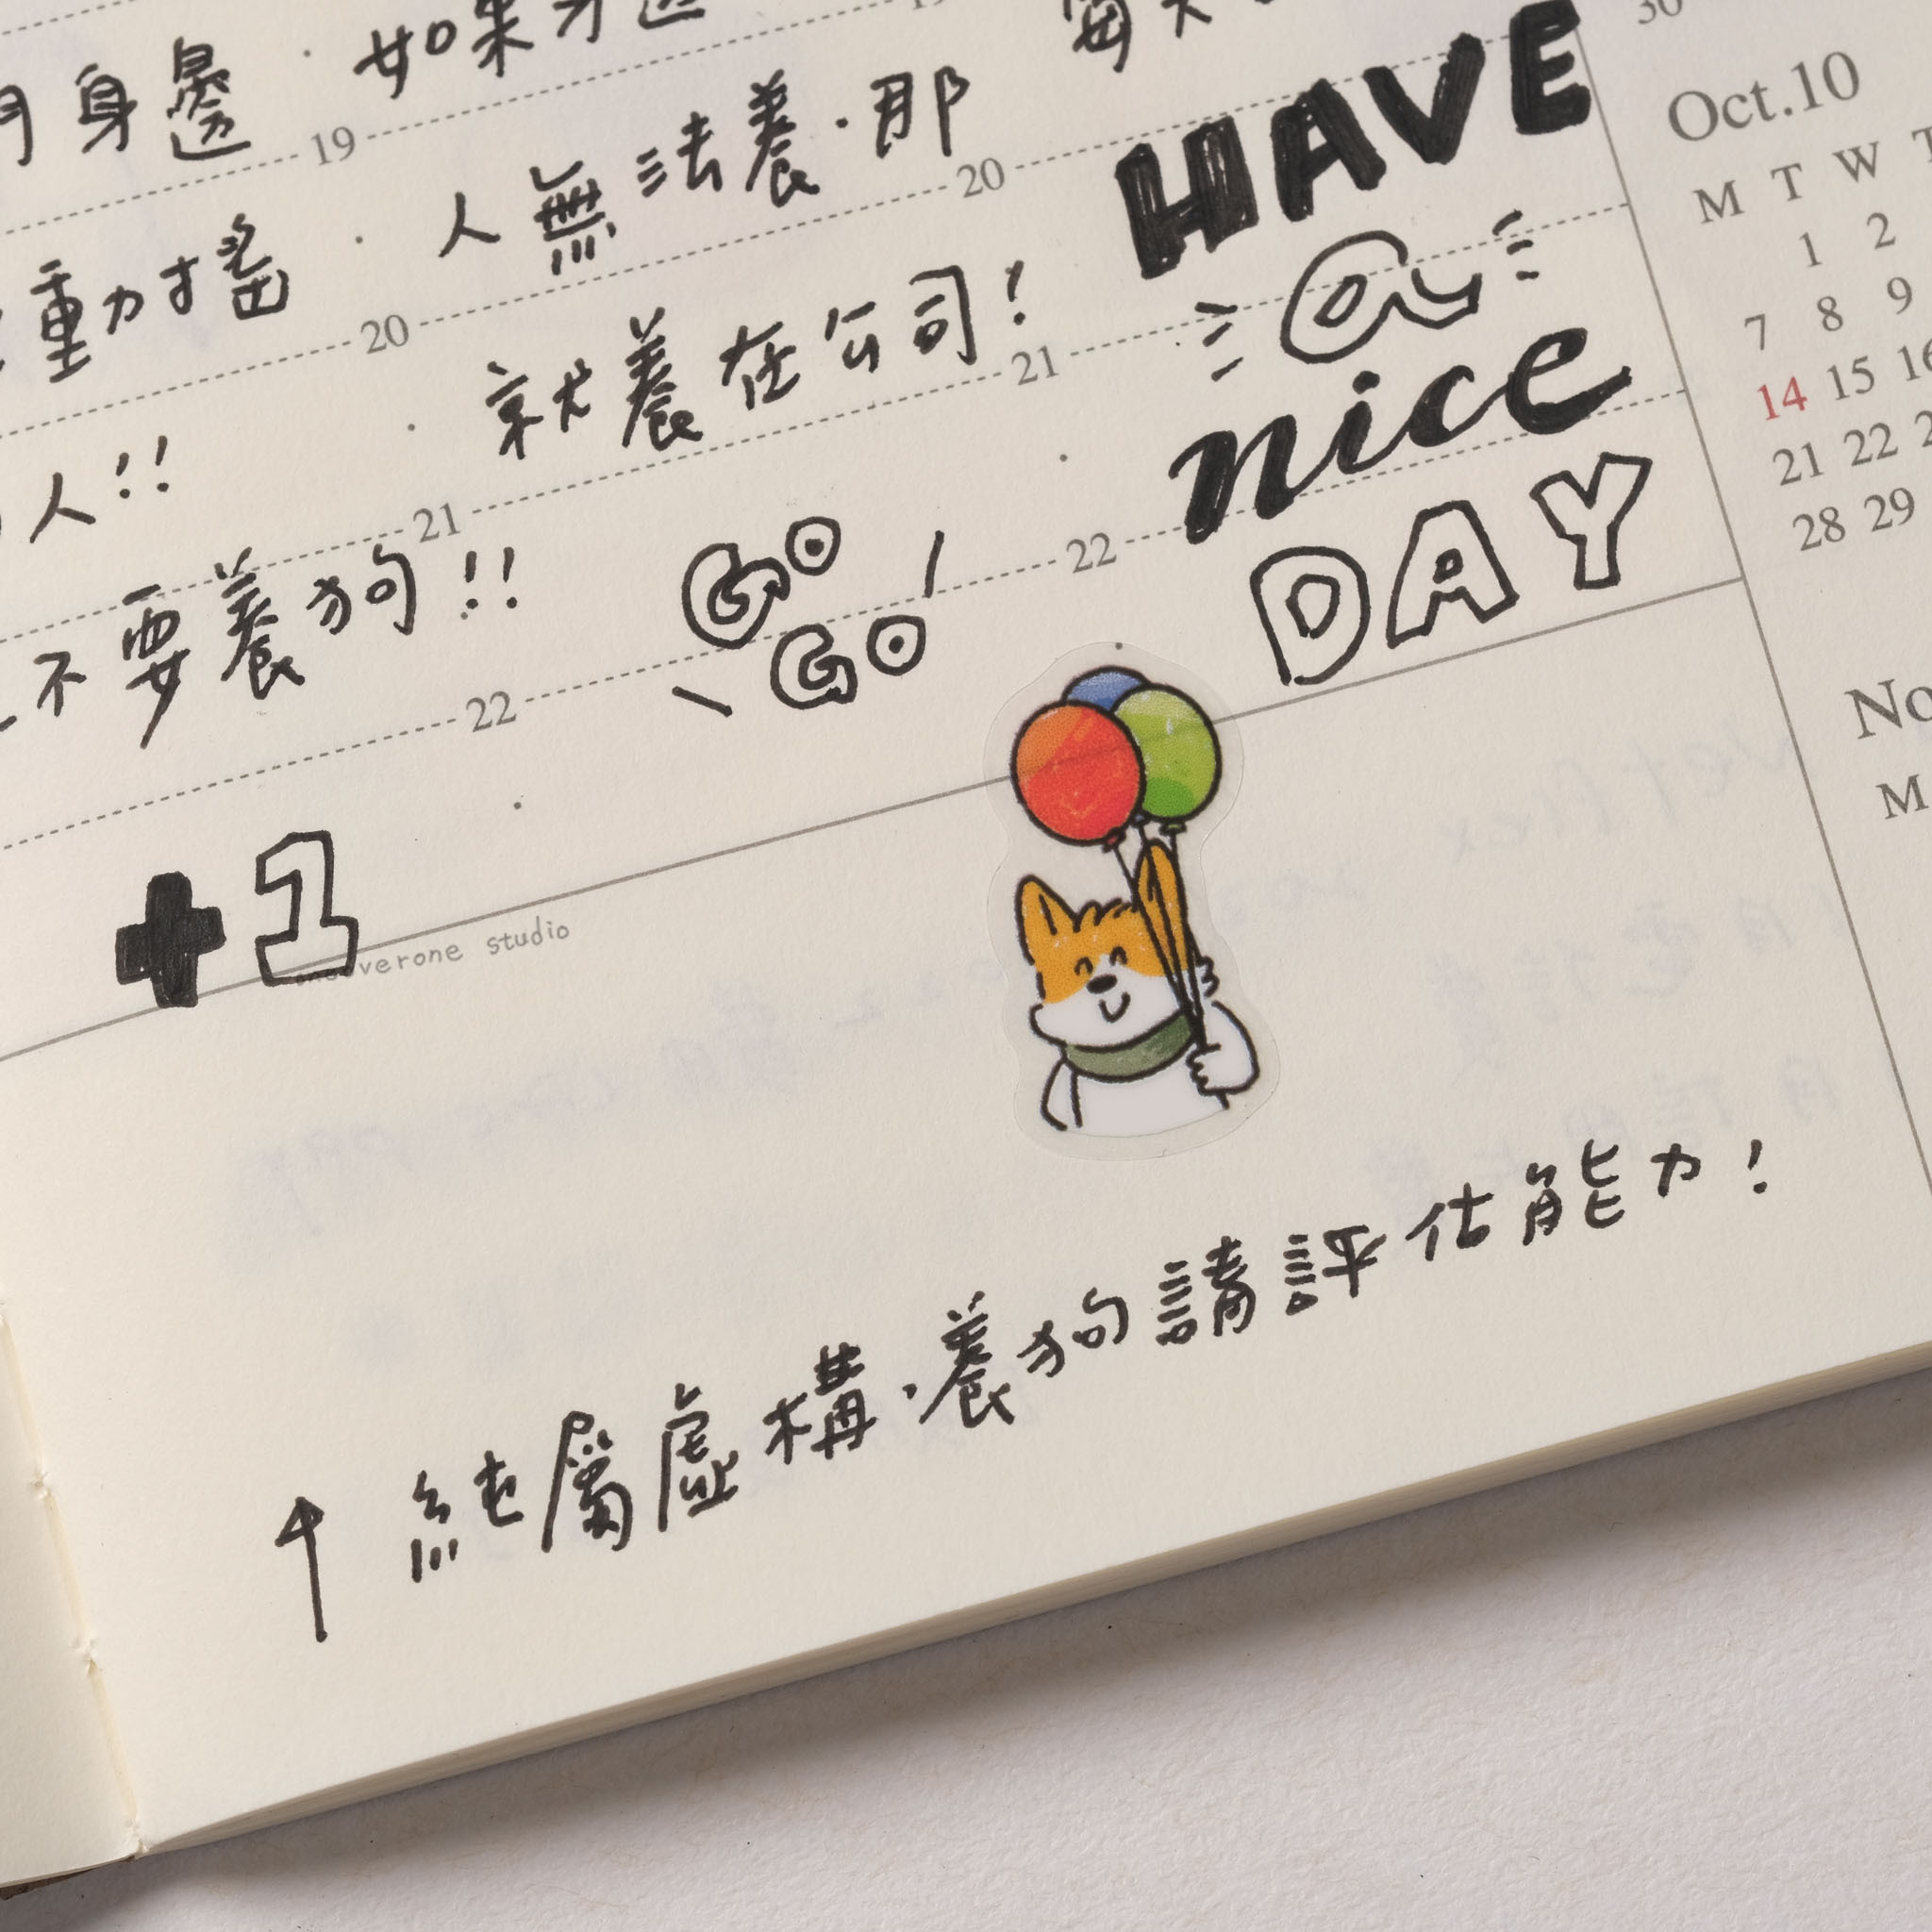 身邊
動搖
人!!
不要養狗!!
+1
19
20
21
22
oneoverone studio
如果
人無法養,那
就養在公司!
GO
GO
20
21
22
HAVE
a
nice
DAY
30
Oct.10
M T W T
1 2
7 8 9
14 15 16
21 22 2
28 29
No
M
↑ 純屬虛構,養狗請評估能力!